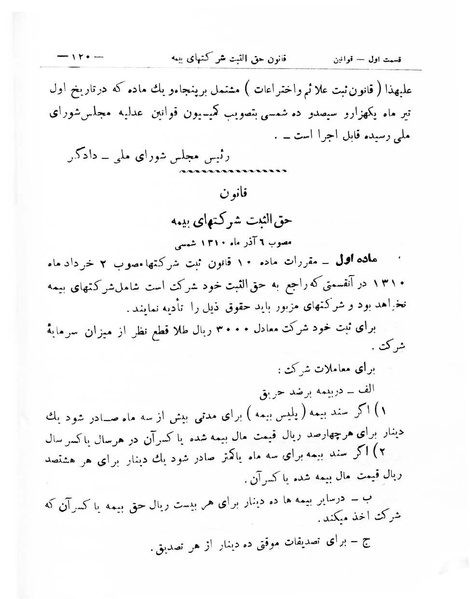 قسمت اول — قوانین
قانون حق الثبت شرکتهای بیمه
— ۱۲۰ —
علیهذا ( قانون ثبت علائم واختراعات ) مشتمل برپنجاه و یك ماده که درتاریخ اول
تیر ماه یکهزارو سیصدو ده شمسی بتصویب کمیسیون قوانین عدلیه مجلس شورای
ملی رسیده قابل اجرا است ـ .
رئیس مجلس شورای ملی ـ دادگر
قانون
حق الثبت شرکتهای بیمه
مصوب ۶ آذر ماه ۱۳۱۰ شمسی
ماده اول ـ مقررات ماده ۱۰ قانون ثبت شرکتها مصوب ۲ خرداد ماه
۱۳۱۰ در آنقسمتی که راجع به حق الثبت خود شرکت است شامل شرکتهای بیمه
نخواهد بود و شرکتهای مزبور باید حقوق ذیل را تأدیه نمایند.
برای ثبت خود شرکت معادل ۳۰۰۰ ریال طلا قطع نظر از میزان سرمایهٔ
شرکت .
برای معاملات شرکت :
الف ـ دربیمه برضد حریق
۱) اگر سند بیمه ( پلیس بیمه ) برای مدتی بیش از سه ماه صادر شود یك
دینار برای هرچهارصد ریال قیمت مال بیمه شده یا کسر آن در هر سال یا کسر سال
۲) اگر سند بیمه برای سه ماه یا کمتر صادر شود یك دینار برای هر هشتصد
ریال قیمت مال بیمه شده یا کسر آن.
ب ـ در سایر بیمه ها ده دینار برای هر بیست ریال حق بیمه یا کسر آن که
شرکت اخذ میکند.
ج ـ برای تصدیقات موقتی ده دینار از هر تصدیق.